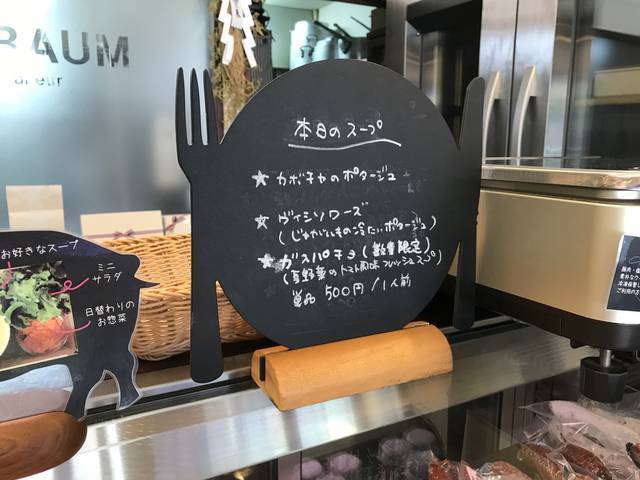 BAUM
本日のスープ
★ カボチャのポタージュ
★ ヴィシソワーズ
(じゃがいもの冷たいポタージュ)
★ ガスパチョ (数量限定)
(夏野菜のトマト風味フレッシュスープ)
単品 500円/1人前
お好きなスープ
ミニ
サラダ
日替わりの
お惣菜